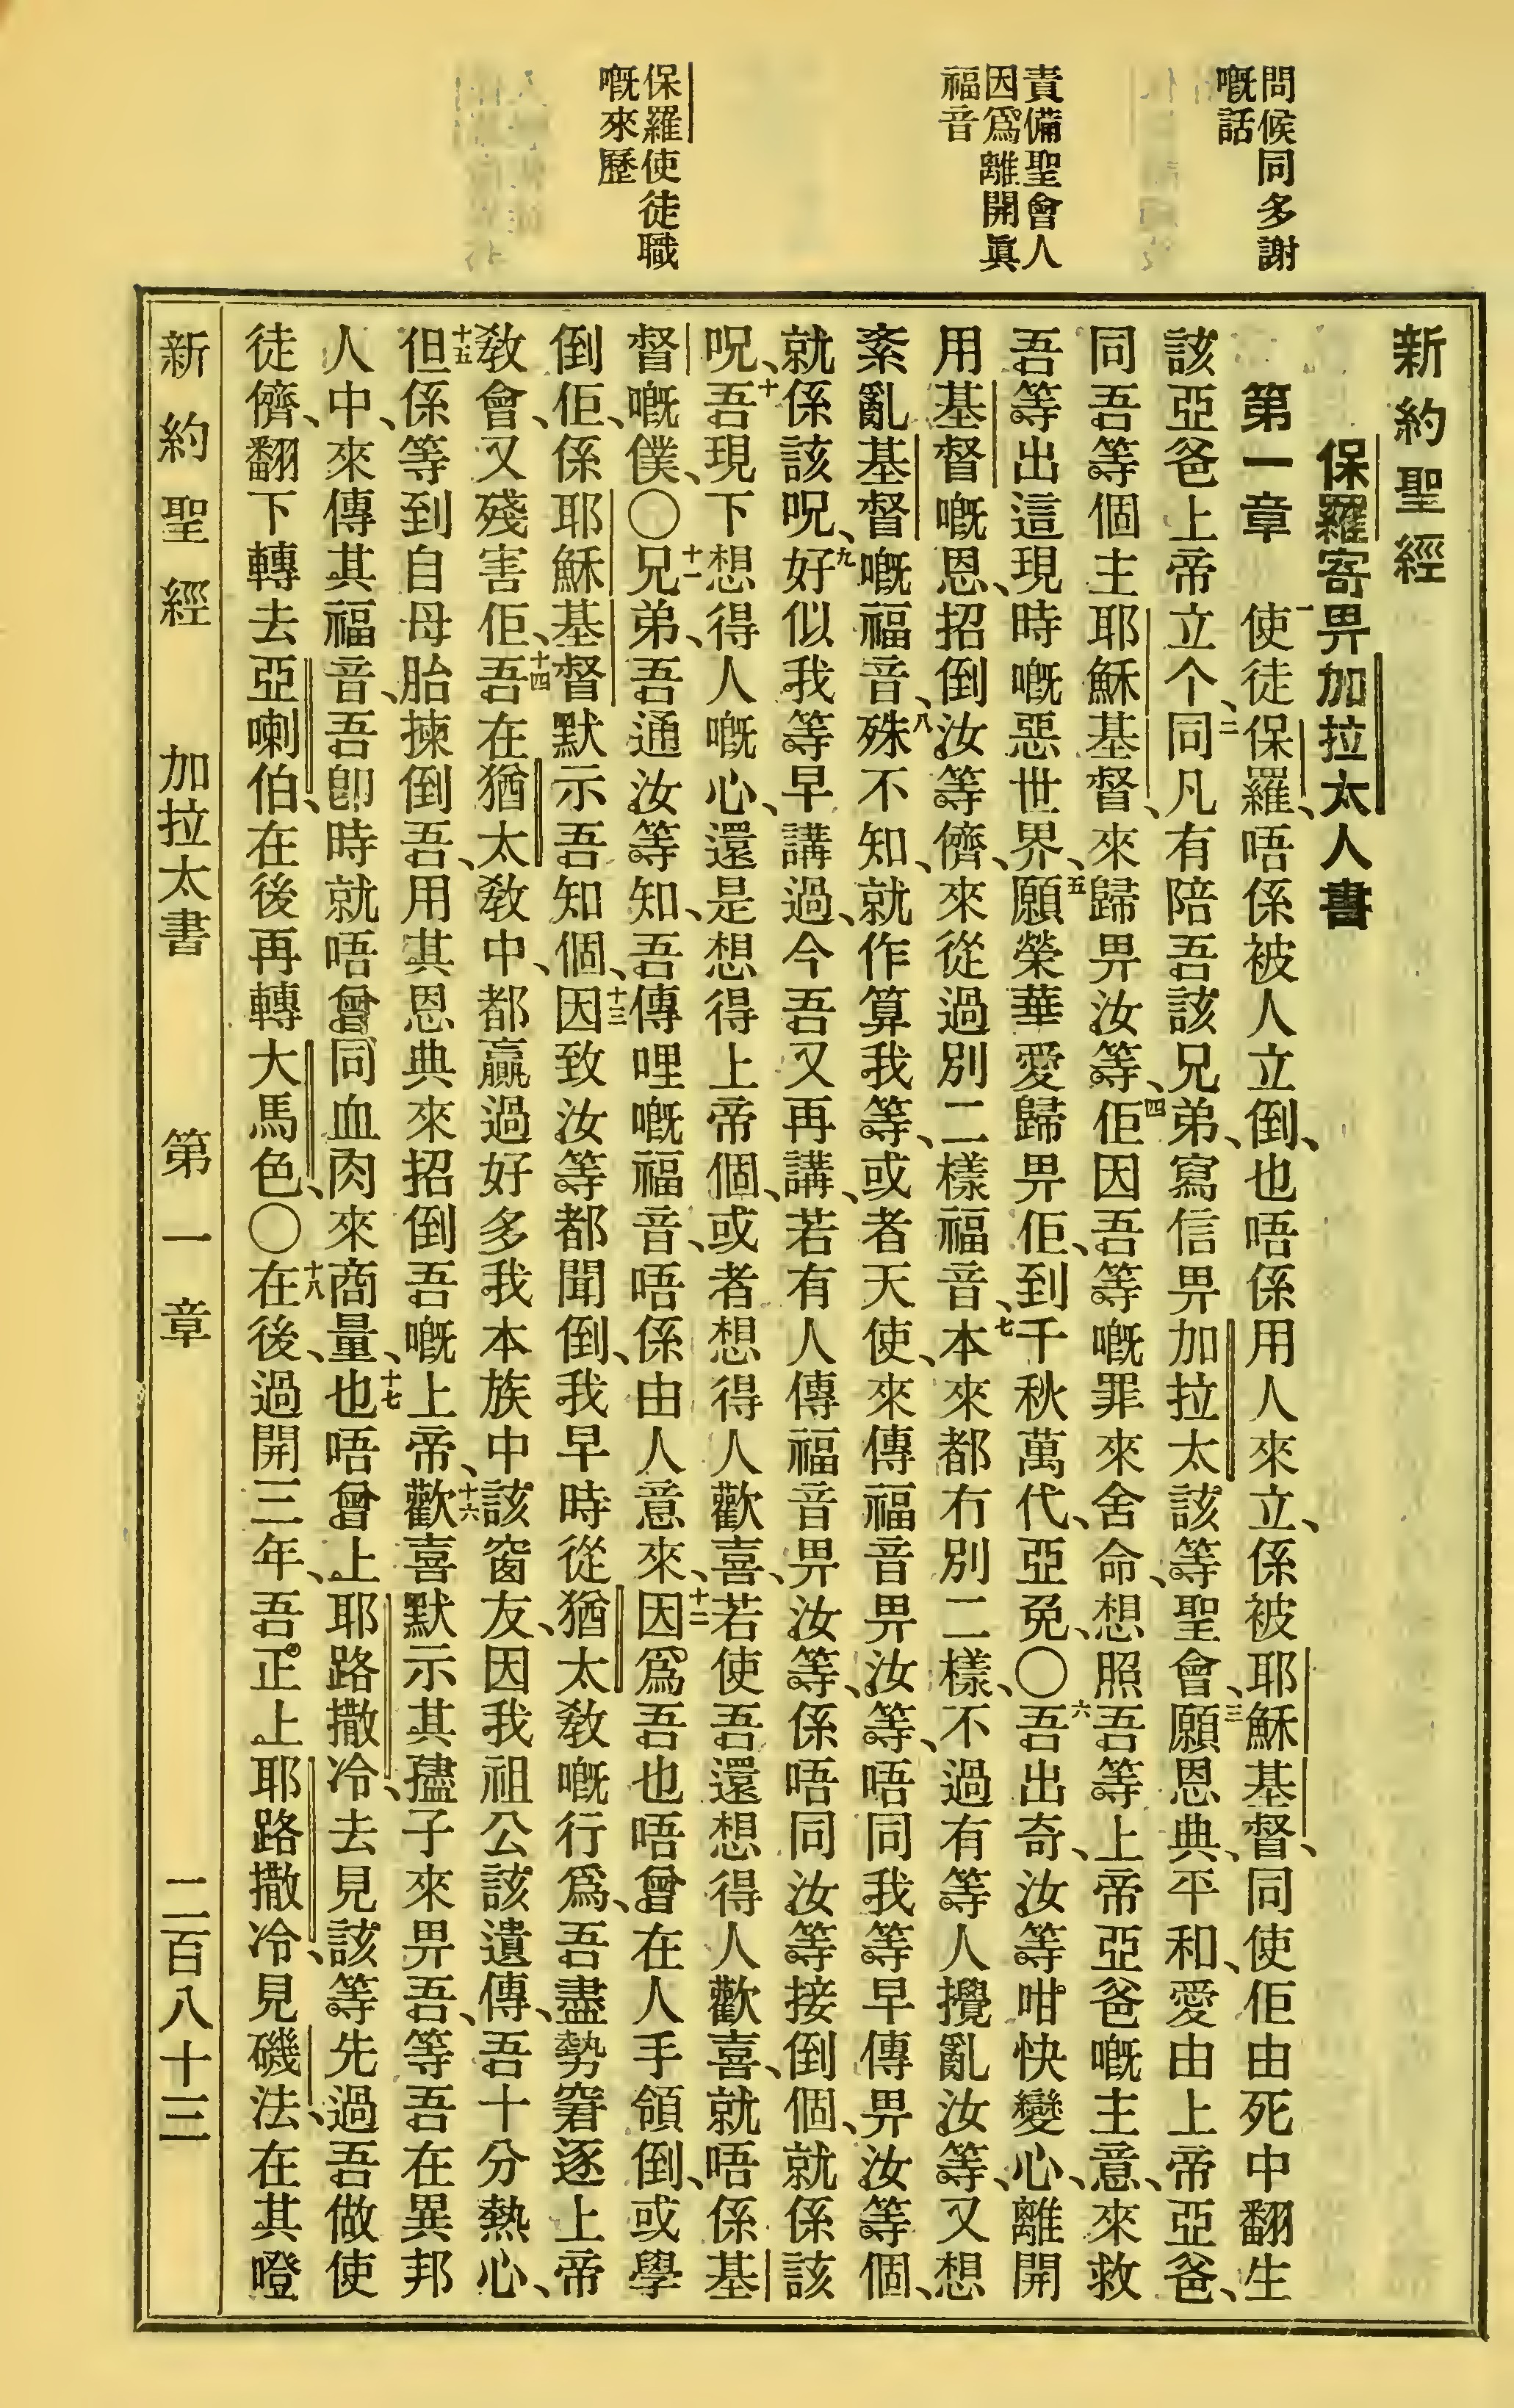 問候同多謝
嘅話
責備聖會人
因爲離開眞
福音
保羅使徒職
嘅來歷
新約聖經
保羅寄畀加拉太人書
第一章　一使徒保羅、唔係被人立倒、也唔係用人來立、係被耶穌基督、同使佢由死中翻生
該亞爸上帝立个、二同凡有陪吾該兄弟、寫信畀加拉太該等聖會、三願恩典、平和、愛由上帝亞爸、
同吾等個主耶穌基督、來歸畀汝等、四佢因吾等嘅罪來舍命、想照吾等上帝亞爸嘅主意、來救
吾等出這現時嘅惡世界、五願榮華愛歸畀佢、到千秋萬代、亞免、〇六吾出奇、汝等咁快變心、離開
用基督嘅恩、招倒汝等儕、來從過別二樣福音、七本來都冇別二樣、不過有等人攪亂汝等、又想
紊亂基督嘅福音、八殊不知、就作算我等、或者天使、來傳福音畀汝等、唔同我等早傳畀汝等個、
就係該呪、九好似我等早講過、今吾又再講、若有人傳福音畀汝等、係唔同汝等接倒個、就係該
呪、十吾現下想得人嘅心、還是想得上帝個、或者想得人歡喜、若使吾還想得人歡喜、就唔係基
督嘅僕、〇十一兄弟、吾通汝等知、吾傳哩嘅福音、唔係由人意來、十二因爲吾也唔曾在人手領倒、或學
倒佢、係耶穌基督默示吾知個、十三因致汝等都聞倒、我早時從猶太敎嘅行爲、吾盡勢窘逐上帝
敎會、又殘害佢、十四吾在猶太敎中、都贏過好多我本族中該窗友、因我祖公該遺傳、吾十分熱心、
十五但係等到自母胎揀倒吾、用其恩典來招倒吾嘅上帝、十六歡喜默示其𡥧子來畀吾、等吾在異邦
人中、來傳其福音、吾卽時就唔曾同血肉來商量、十七也唔曾上耶路撒冷、去見該等先過吾做使
徒儕、翻下轉去亞喇伯、在後再轉大馬色、〇十八在後、過開三年、吾正上耶路撒冷、見磯法、在其嶝
新約聖經　加拉太書　第一章　二百八十三